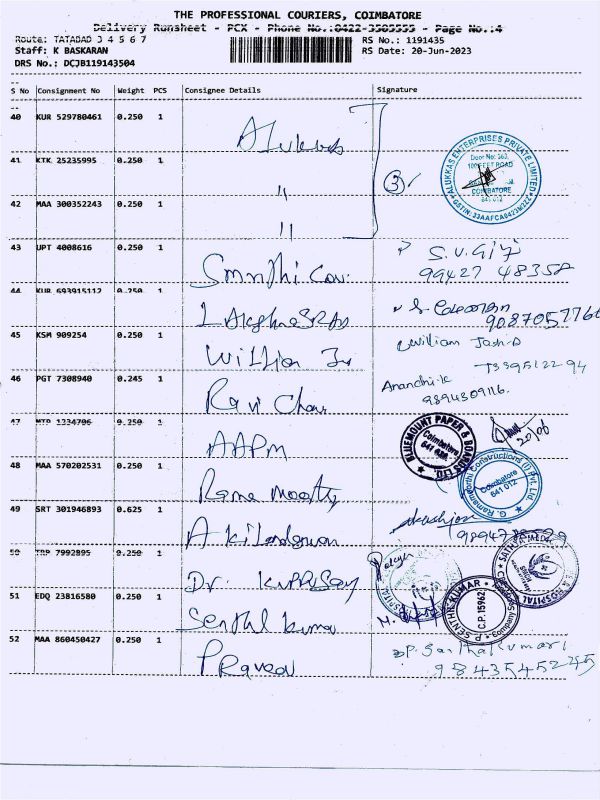 THE PROFESSIONAL COURIERS, COIMBATORE
Delivery Runsheet - PCX - Phone No.:0422-3505555 - Page No.:4
Route: TATABAD 3 4 5 6 7
RS No.: 1191435
Staff: K BASKARAN
RS Date: 20-Jun-2023
DRS No.: DCJB119143504
S No Consignment No Weight PCS Consignee Details Signature
40 KUR 529780461 0.250 1 Alukkas
41 KTK 25235995 0.250 1 "
42 MAA 300352243 0.250 1 "
3
ALUKKAS ENTERPRISES PRIVATE LIMITED
Door No: 363,
100 FEET ROAD
COIMBATORE
641 012
GSTIN: 33AAFCA0423M2ZZ
43 UPT 4008616 0.250 1 S.V.Giji
99427 48358
44 KUR 693915112 0.250 1
9087057766
45 KSM 909254 0.250 1 William
William Josh
46 PGT 7308940 0.245 1 Ravi
Anandhi.K
9894309116.
47 MTP 1234706 0.250 1 AAPM
BLUEMOUNT PAPER & BOARDS LTD.
Coimbatore
20/06
48 MAA 570202531 0.250 1 Rama Moorthy
G. Ramamoorthi Constructions (I) Pvt. Ltd.
Coimbatore
641 012
49 SRT 301946893 0.625 1
50 TRP 7992895 0.250 1 Dr. Kuppusamy
HOSPITAL
51 EDQ 23816580 0.250 1 Senthil Kumar
P SENTHIL KUMAR
C.P.15962
Company Secretary
52 MAA 860450427 0.250 1 Praveen
P. Santhakumari
9843545245